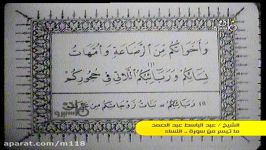 وَأَخَوَاتُكُم مِّنَ الرَّضَاعَةِ وَأُمَّهَاتُ
نِسَائِكُمْ وَرَبَائِبُكُمُ (١) اللَّاتِي فِي حُجُورِكُم
(١) رَبَائِبُكُمْ = بَنَاتُ زَوْجَاتِكُمْ مِن
الشيخ / عبد الباسط عبد الصمد
ما تيسر من سورة .. النساء
aparat.com/m118